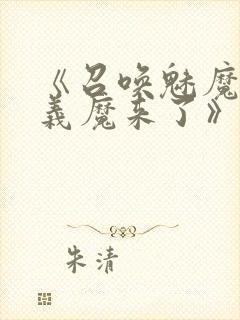 《召唤魅魔
義魔来了》
朱清